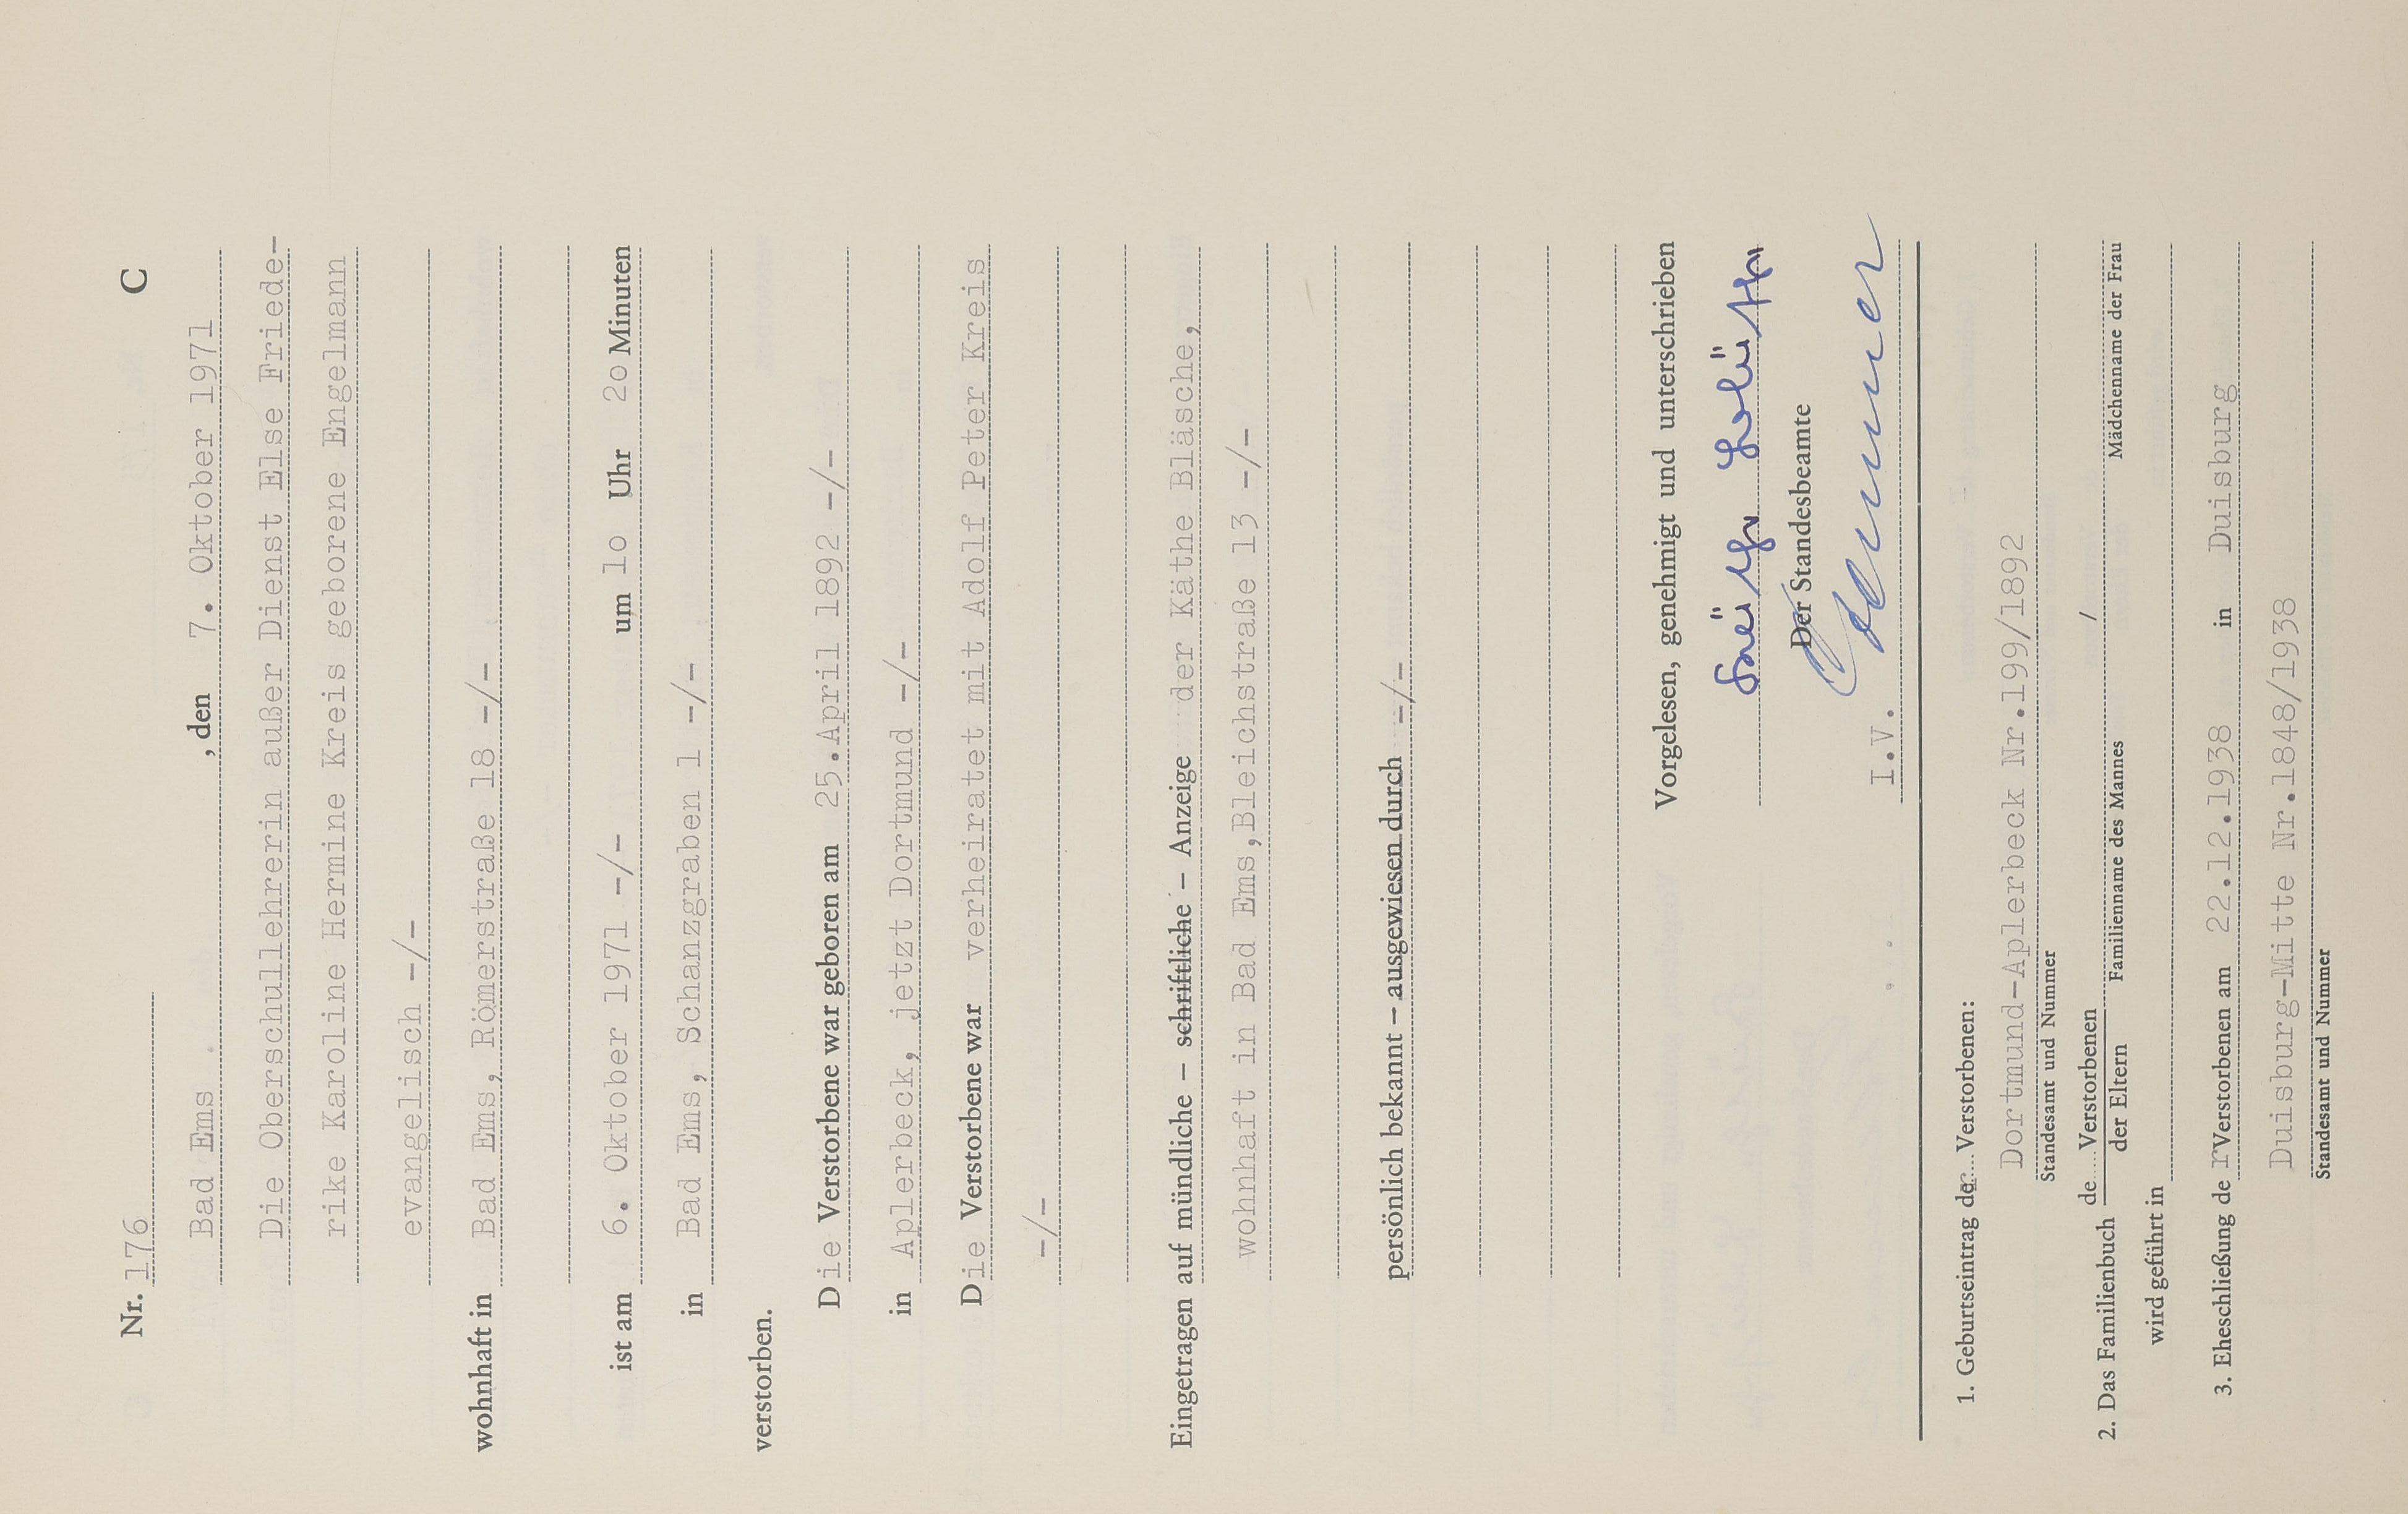 Nr. 176 C
Bad Ems , den 7. Oktober 1971
Die Oberschullehrerin außer Dienst Else Friede-
rike Karoline Hermine Kreis geborene Engelmann
evangelisch -/-
wohnhaft in Bad Ems, Römerstraße 18 -/-
ist am 6. Oktober 1971 -/- um 10 Uhr 20 Minuten
in Bad Ems, Schanzgraben 1 -/-
verstorben.
Die Verstorbene war geboren am 25.April 1892 -/-
in Aplerbeck, jetzt Dortmund -/-
Die Verstorbene war verheiratet mit Adolf Peter Kreis
-/-
Eingetragen auf mündliche – schriftliche – Anzeige der Käthe Bläsche,
wohnhaft in Bad Ems,Bleichstraße 13 -/-
persönlich bekannt – ausgewiesen durch -/-
Vorgelesen, genehmigt und unterschrieben
Der Standesbeamte
I.V.
1. Geburtseintrag der Verstorbenen:
Dortmund-Aplerbeck Nr.199/1892
Standesamt und Nummer
2. Das Familienbuch de.... Verstorbenen /
der Eltern Familienname des Mannes Mädchenname der Frau
wird geführt in
3. Eheschließung der Verstorbenen am 22.12.1938 in Duisburg
Duisburg-Mitte Nr.1848/1938
Standesamt und Nummer